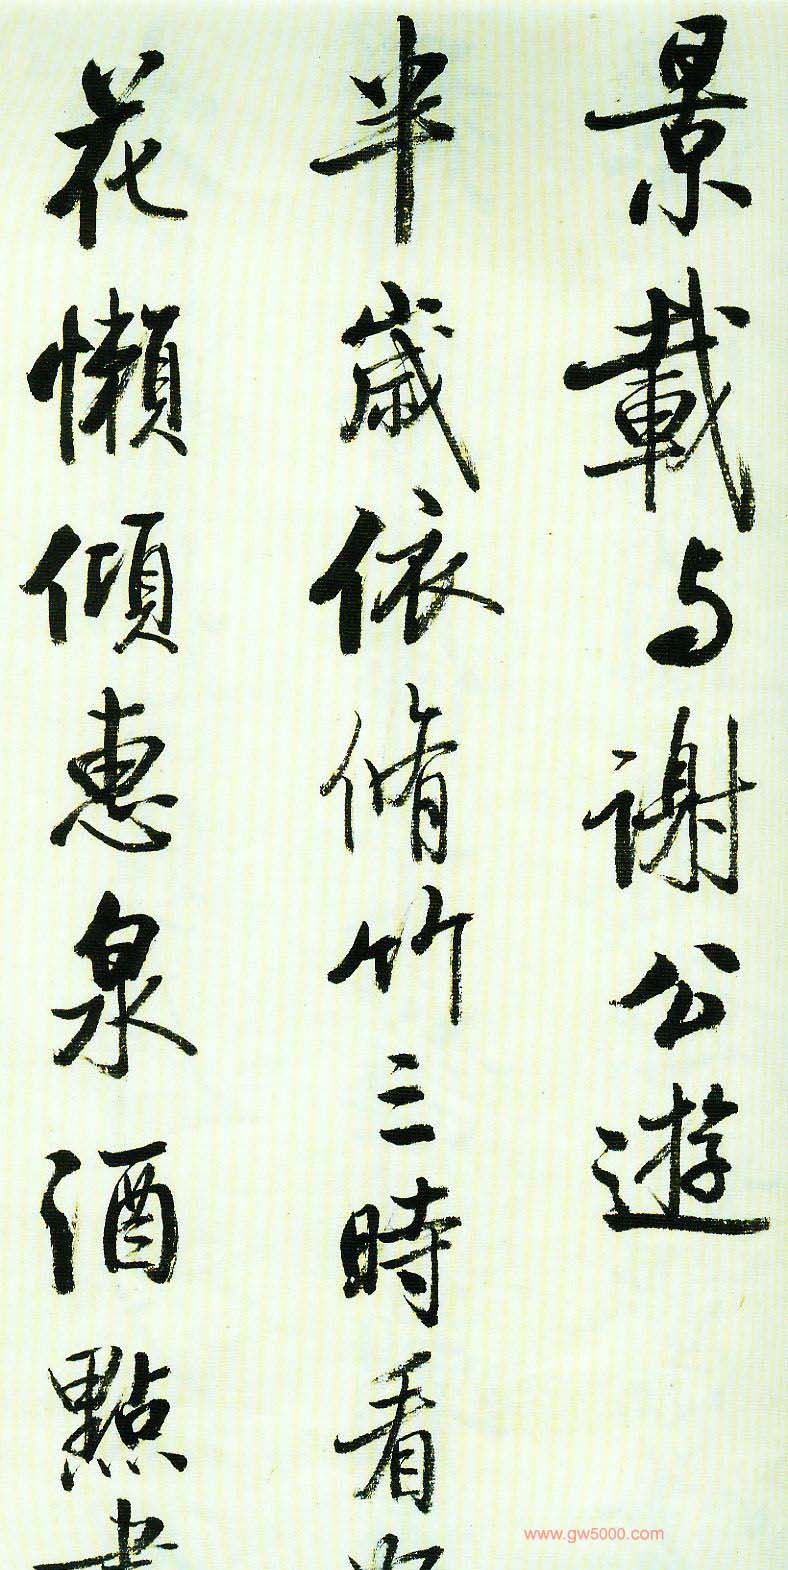 景載与謝公遊
半歲依脩竹三時看
花懶傾惠泉酒點
www.gw5000.com